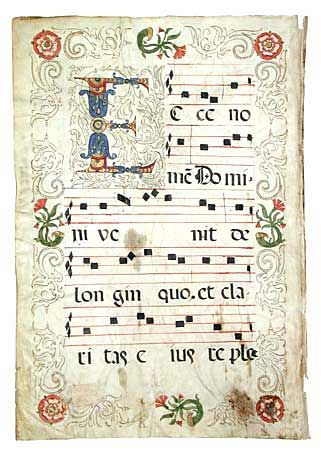 E c ce no
mē Do mi-
ni ve nit de
lon gin quo. et cla
ri tas e ius reple